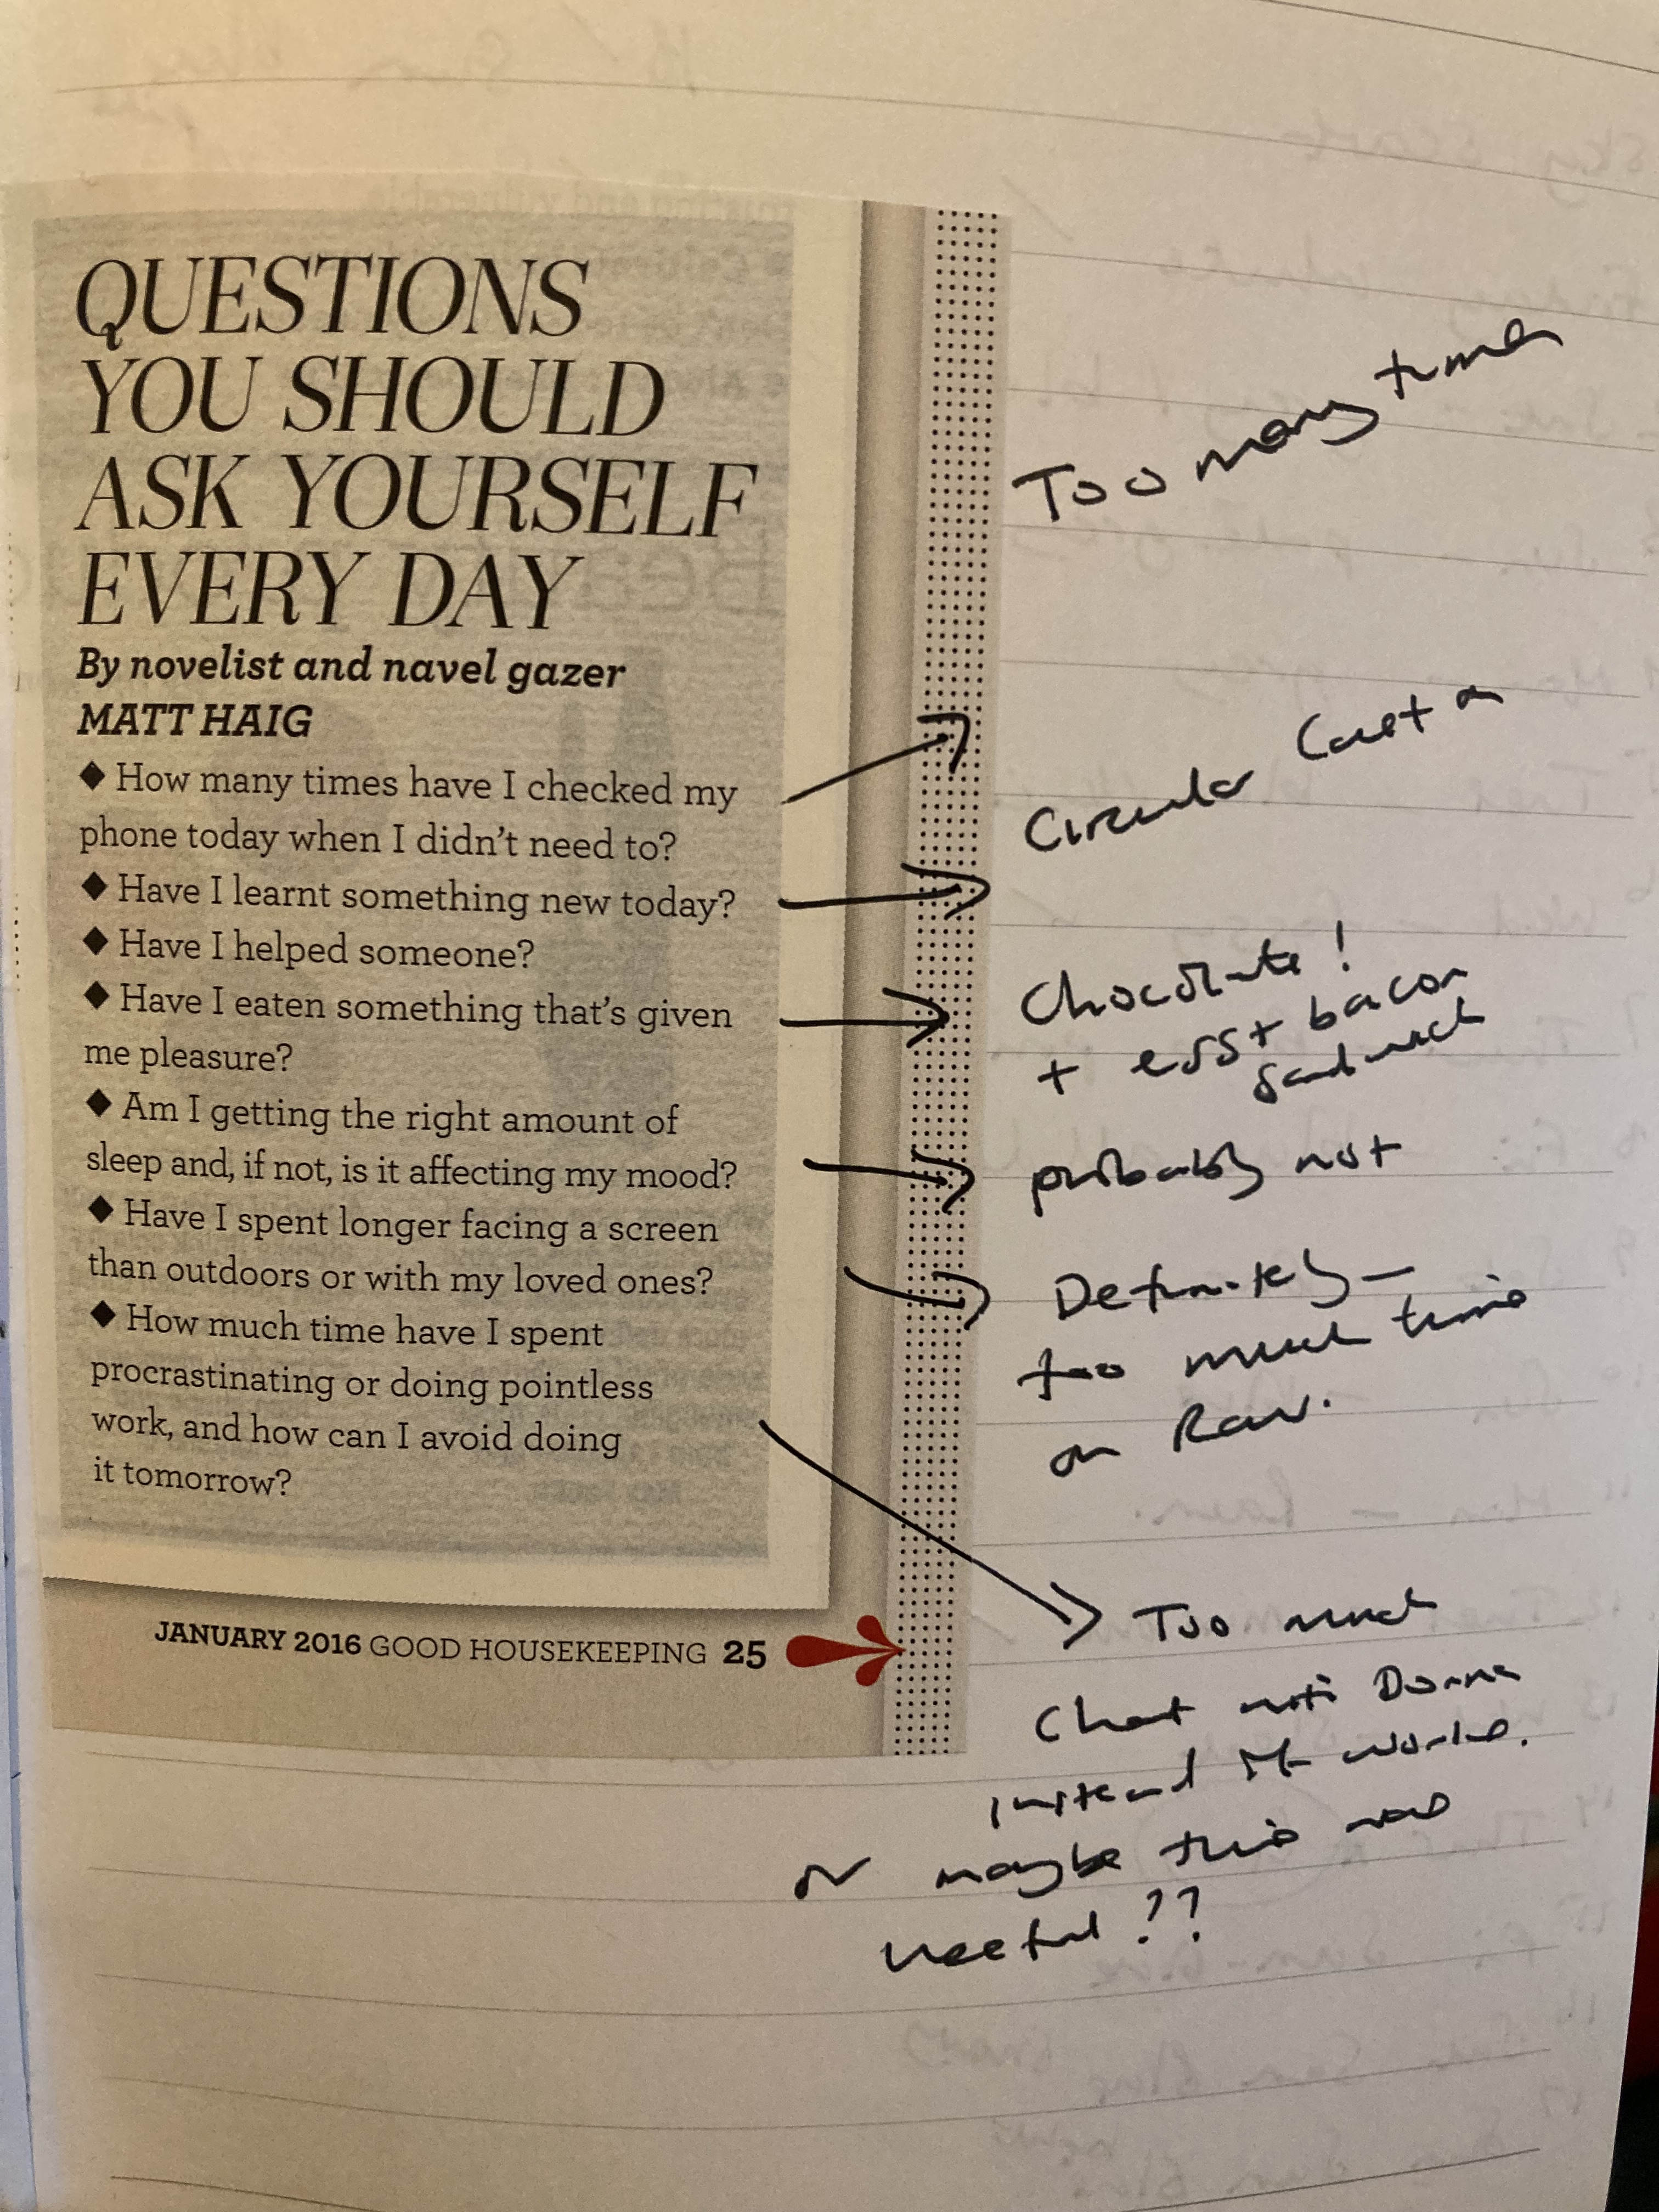 QUESTIONS
YOU SHOULD
ASK YOURSELF
EVERY DAY
By novelist and navel gazer
MATT HAIG
◆ How many times have I checked my
phone today when I didn't need to?
◆ Have I learnt something new today?
◆ Have I helped someone?
◆ Have I eaten something that's given
me pleasure?
◆ Am I getting the right amount of
sleep and, if not, is it affecting my mood?
◆ Have I spent longer facing a screen
than outdoors or with my loved ones?
◆ How much time have I spent
procrastinating or doing pointless
work, and how can I avoid doing
it tomorrow?
JANUARY 2016 GOOD HOUSEKEEPING 25
Too many times
Circular Cast on
Chocolate!
+ egg + bacon
sandwich
probably not
Definitely –
too much time
on Rav.
Too much
Chat with Donna
instead of work.
or maybe this was
useful??